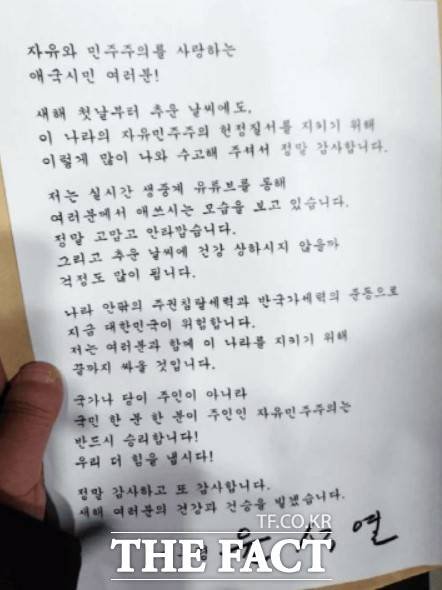 자유와 민주주의를 사랑하는
애국시민 여러분!
새해 첫날부터 추운 날씨에도,
이 나라의 자유민주주의 헌정질서를 지키기 위해
이렇게 많이 나와 수고해 주셔서 정말 감사합니다.
저는 실시간 생중계 유튜브를 통해
여러분께서 애쓰시는 모습을 보고 있습니다.
정말 고맙고 안타깝습니다.
그리고 추운 날씨에 건강 상하시지 않을까
걱정도 많이 됩니다.
나라 안팎의 주권침탈세력과 반국가세력의 준동으로
지금 대한민국이 위험합니다.
저는 여러분과 함께 이 나라를 지키기 위해
끝까지 싸울 것입니다.
국가나 당이 주인이 아니라
국민 한 분 한 분이 주인인 자유민주주의는
반드시 승리합니다!
우리 더 힘을 냅시다!
정말 감사하고 또 감사합니다.
새해 여러분의 건강과 건승을 빌겠습니다.
윤 석 열
TF.CO.KR
THE FACT